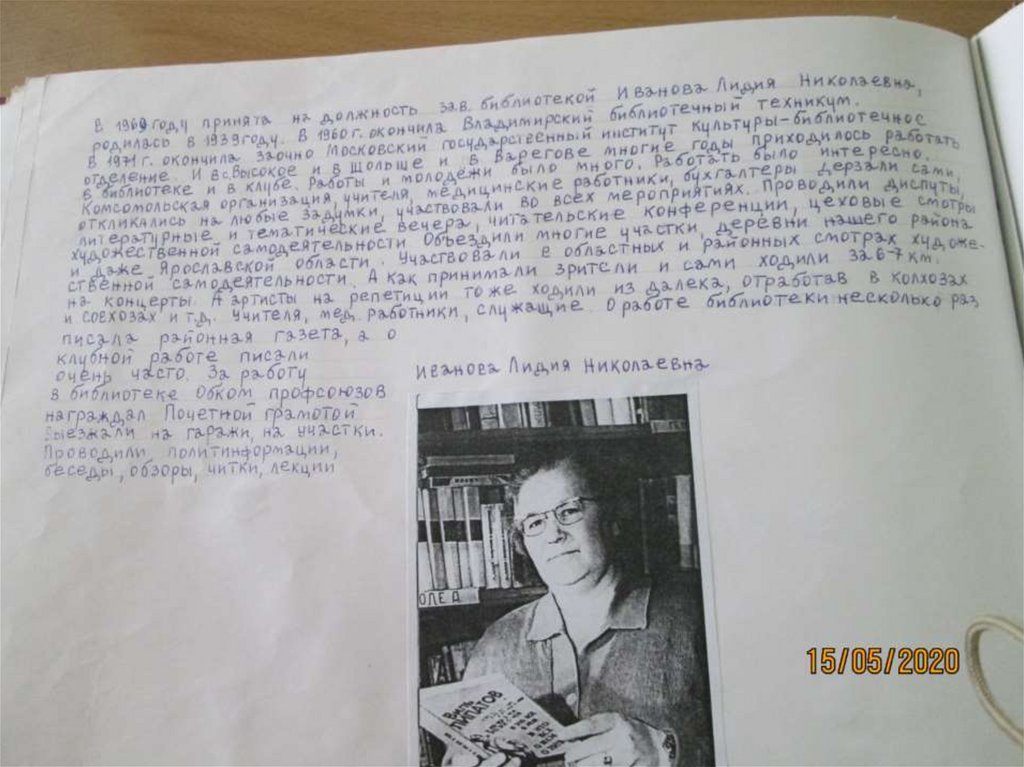 В 1969 году принята на должность зав. библиотекой Иванова Лидия Николаевна,
родилась в 1939 году. В 1960 г. окончила Владимирский библиотечный техникум.
В 1971 г. окончила заочно Московский государственный институт культуры-библиотечное
отделение. И в с. Высокое и в Шольше и в Варегове многие годы приходилось работать
в библиотеке и в клубе. Работы и молодежи было много. Работать было интересно.
Комсомольская организация, учителя, медицинские работники, бухгалтеры дерзали сами,
откликались на любые задумки, участвовали во всех мероприятиях. Проводили диспуты,
литературные и тематические вечера, читательские конференции, цеховые смотры
художественной самодеятельности. Объездили многие участки, деревни нашего района
и даже Ярославской области. Участвовали в областных и районных смотрах художе-
ственной самодеятельности. А как принимали зрители и сами ходили за 6-7 км.
на концерты. А артисты на репетиции тоже ходили из далека, отработав в колхозах
и совхозах и т.д. Учителя, мед. работники, служащие. О работе библиотеки несколько раз
писала районная газета, а о
клубной работе писали
очень часто. За работу
в библиотеке Обком профсоюзов
награждал Почетной грамотой
Выезжали на гаражи, на участки.
Проводили политинформации,
беседы, обзоры, читки, лекции
Иванова Лидия Николаевна
ОЛЕД
Виль
ЛИПАТОВ
15/05/2020